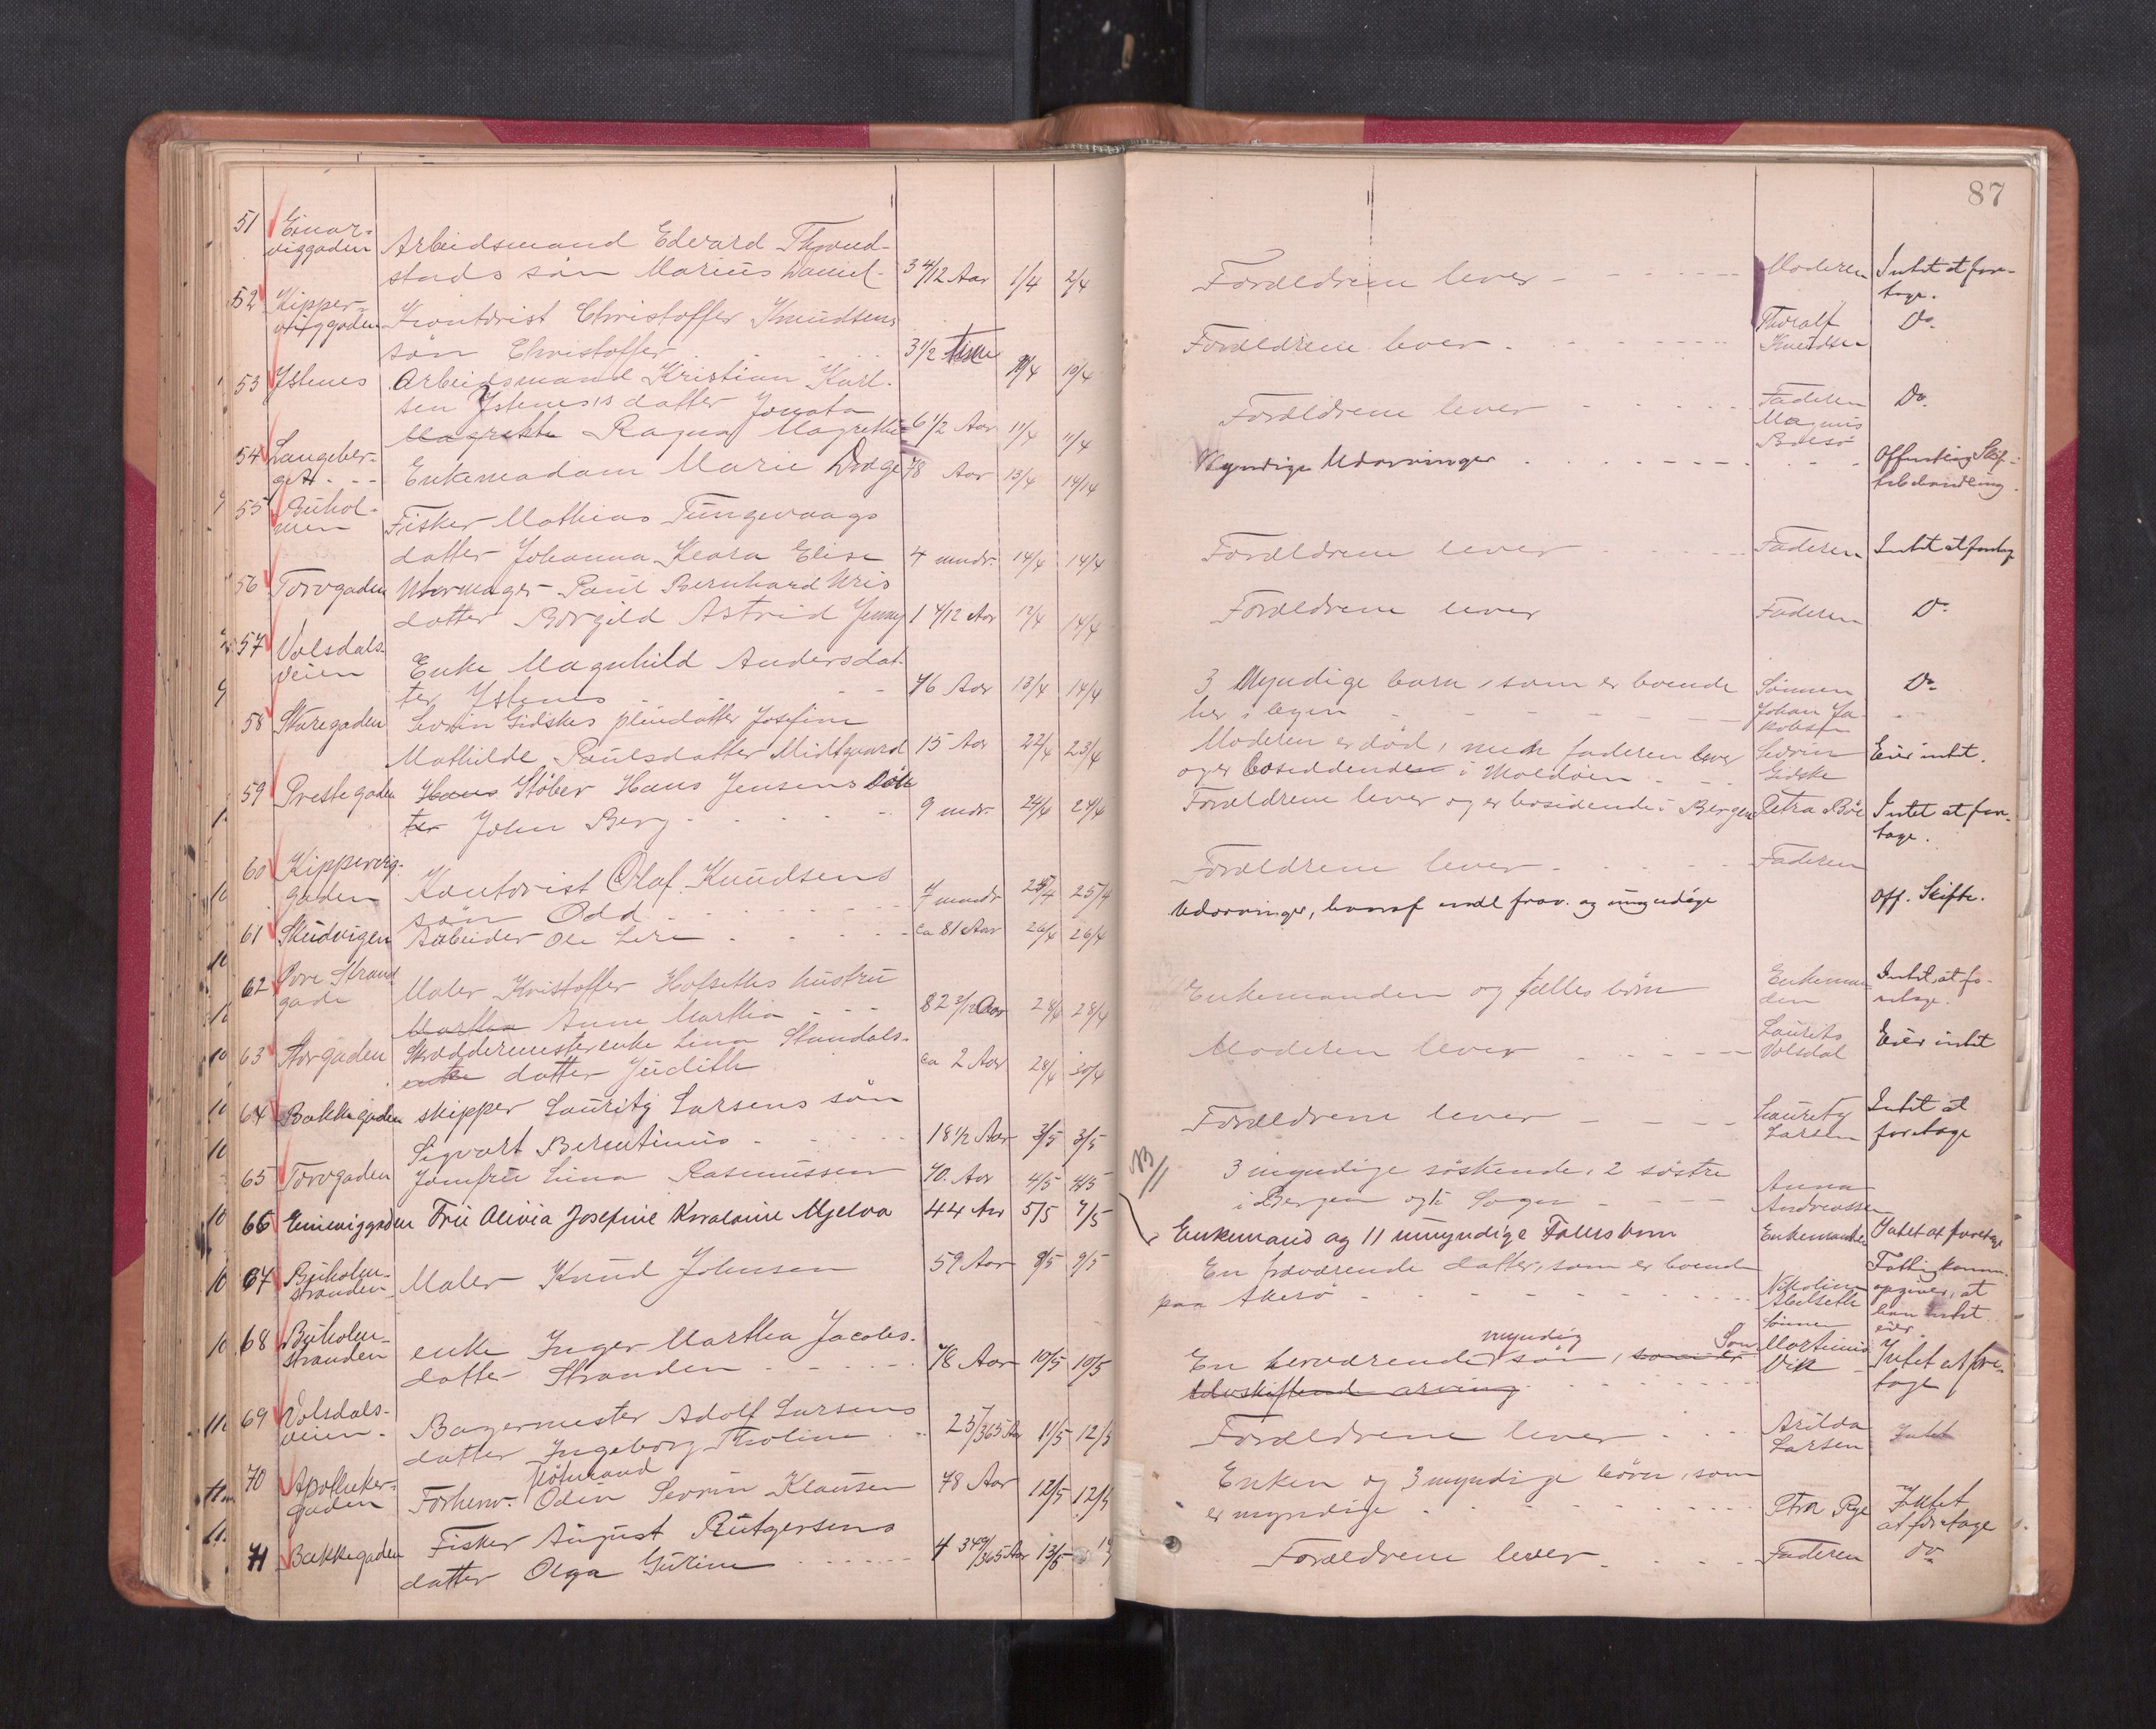 87
51 Einar- Arbeidsmand Edvard Thyvold-
viggaden stads søn Marius Daniel- 3 4/12 Aar 1/4 2/4 Forældrene lever - Moderen Intet at fore-
tage.
52 Kipper- Kontorist Christoffer Knudsens
viggaden søn Christoffer 3 1/2 10/4 Forældrene lever - Thoralf Knudsen Do.
53 Ystenes Arbeidsmand Kristian Karl-
sen Ystenes's datter Jonata
Magrethe Ragna Magrethe 6 1/2 Aar 11/4 11/4 Forældrene lever Faderen Do.
54 Langeber- Enkemadam Marie Dodge 78 Aar 13/4 14/14 Myndige Udarvinger Magnus Offentlig Skif-
tebehandling.
55 Buhol- Fisker Mathias Tungevaags
men datter Johanna Klara Elise 4 mndr. 14/4 14/4 Forældrene lever Faderen Intet at foretage
56 Torvgaden Paul Bernhard
datter Borgild Astrid Jenny 1 4/12 Aar 12/4 14/4 Forældrene lever Faderen Do.
57 Volsdals- Enke Magnhild Andersdat-
veien ter Ystenes 76 Aar 13/4 14/4 3 Myndige barn, som er boende Sønnen Do.
her i byen Johan Ja-
kobsen
58 Storegaden Sevrin Gidskes pleiedatter Josefine
Mathilde Paulsdatter Midtgaard 15 Aar 22/4 23/4 Moderen er død, men faderen lever Sevrin Eier intet.
og er bosiddende i Moldøen Gidske
59 Prestegaden Hans Støber Hans Jensens
ter John Berg 9 mdr. 24/4 24/4 Forældrene lever og er bosidende i Bergen Petra Bøe Intet at fore-
tage.
60 Kippervig- Kontorist Olaf Knudsens
gaden søn Odd 7 mndr 25/4 25/4 Forældrene lever Faderen
61 Skudvigen Arbeider Ole Lere ca 81 Aar 26/4 26/4 Udarvinger, hvoraf endel frav. og umyndige Off. Skifte.
62 Øvre Strand Maler Kristoffer Hofseths hustru
gade Martha Anne Martha 82 2/12 Aar 28/4 28/4 Enkemanden og fælles børn Enkeman- Intet at fo-
den retage.
63 Storgaden Skræddermesterenke Lina Standals-
enke datter Judith ca 2 Aar 28/4 30/4 Moderen lever Laurits Eier intet
Volsdal
64 Bakkegaden skipper Lauritz Larsens søn
Sigvart Berentinus 18 1/2 Aar 3/5 3/5 Forældrene lever Lauritz Intet at
Larsen foretage
65 Torvgaden Jomfru Lina Rasmussen 70. Aar 4/5 4/5 3 myndige søskende, 2 søstre Anna
i Bergen og 1 i Sogn Andreassen
66 Einarviggaden Frue Olivia Josefine Karoline Mjelva 44 Aar 5/5 7/5 Enkemand og 11 umyndige Fællesbørn Enkemanden Intet at foretage
67 Buholm- Maler Knud Johnsen 59 Aar 9/5 9/5 En fraværende datter, som er boende Nikoline Fattigkomm.
stranden paa Akerø Abelseth opgiver, at
han intet
eier.
68 Buholm- enke Inger Martha Jacobs-
stranden datter Stranden 78 Aar 10/5 10/5 En herværende myndig søn, som er Sønnen Martinus Intet at fore-
selvskiftende arving Vik tage
69 Volsdals- Bagermester Adolf Larsens
veien. datter Ingeborg Tholine 25/365 Aar 11/5 12/5 Forældrene lever Arilda Intet
Larsen
70 Apotheker- Forhenv. Odin Sevrin Klausen 78 Aar 12/5 12/5 Enken og 3 myndige børn, som Intet
gaden er myndige Fra Rye at foretage
71 Bakkegaden Fisker August Rutgersens
datter Olga Gurine 4 349/365 Aar 13/5 Forældrene lever Faderen do